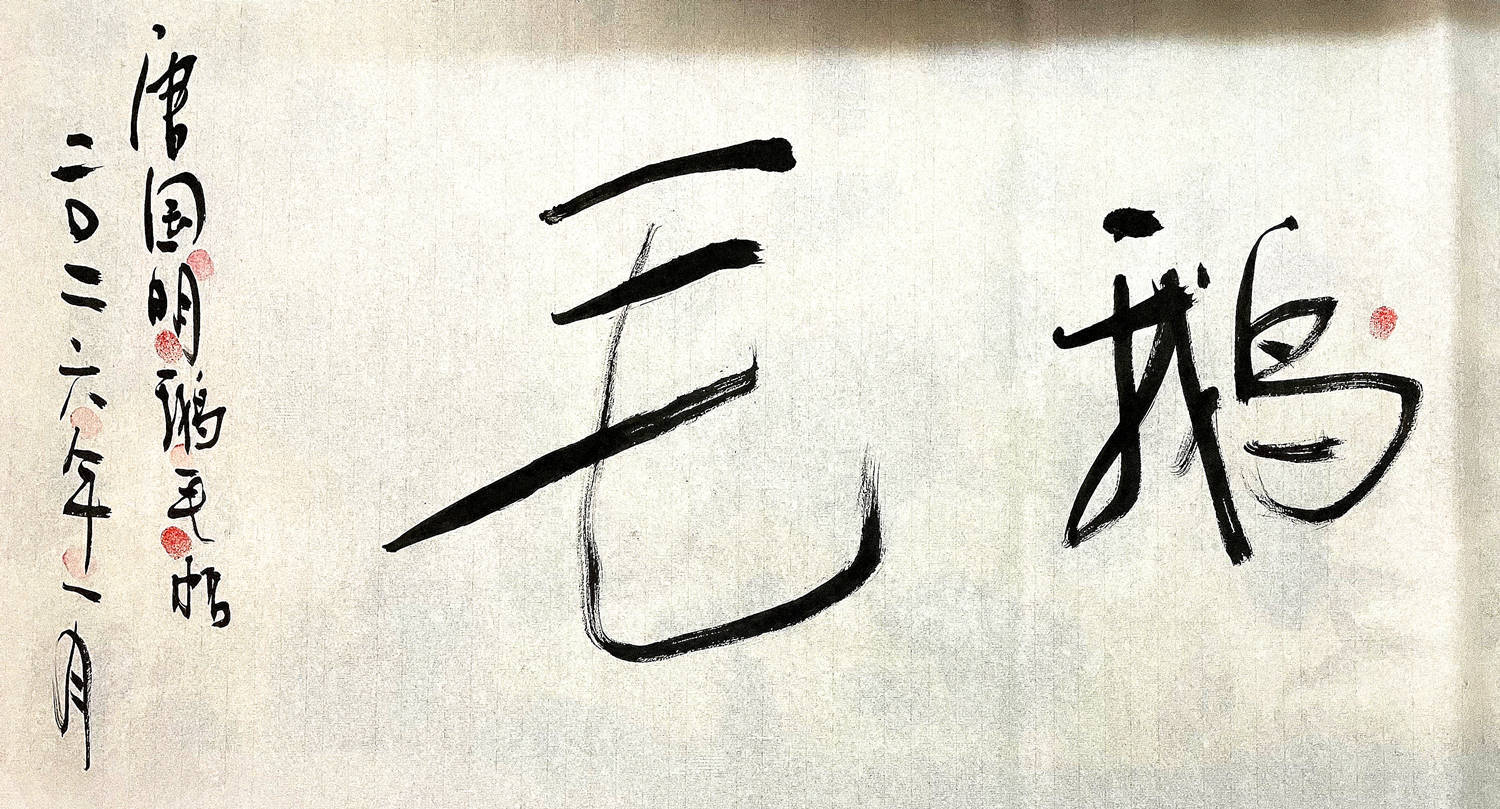 鹅毛
唐国明鹅毛帖
二〇二六年一月